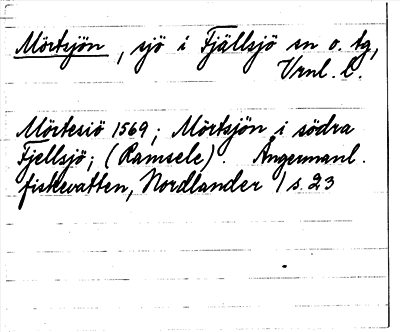 Mörtsjön, sjö i Fjällsjö sn o. tg,
Vrnl. l.
Mörtesiö 1569; Mörtsjön i södra
Fjellsjö; (Ramsele). Ångermanl.
fiskevatten, Nordlander 1 s. 23